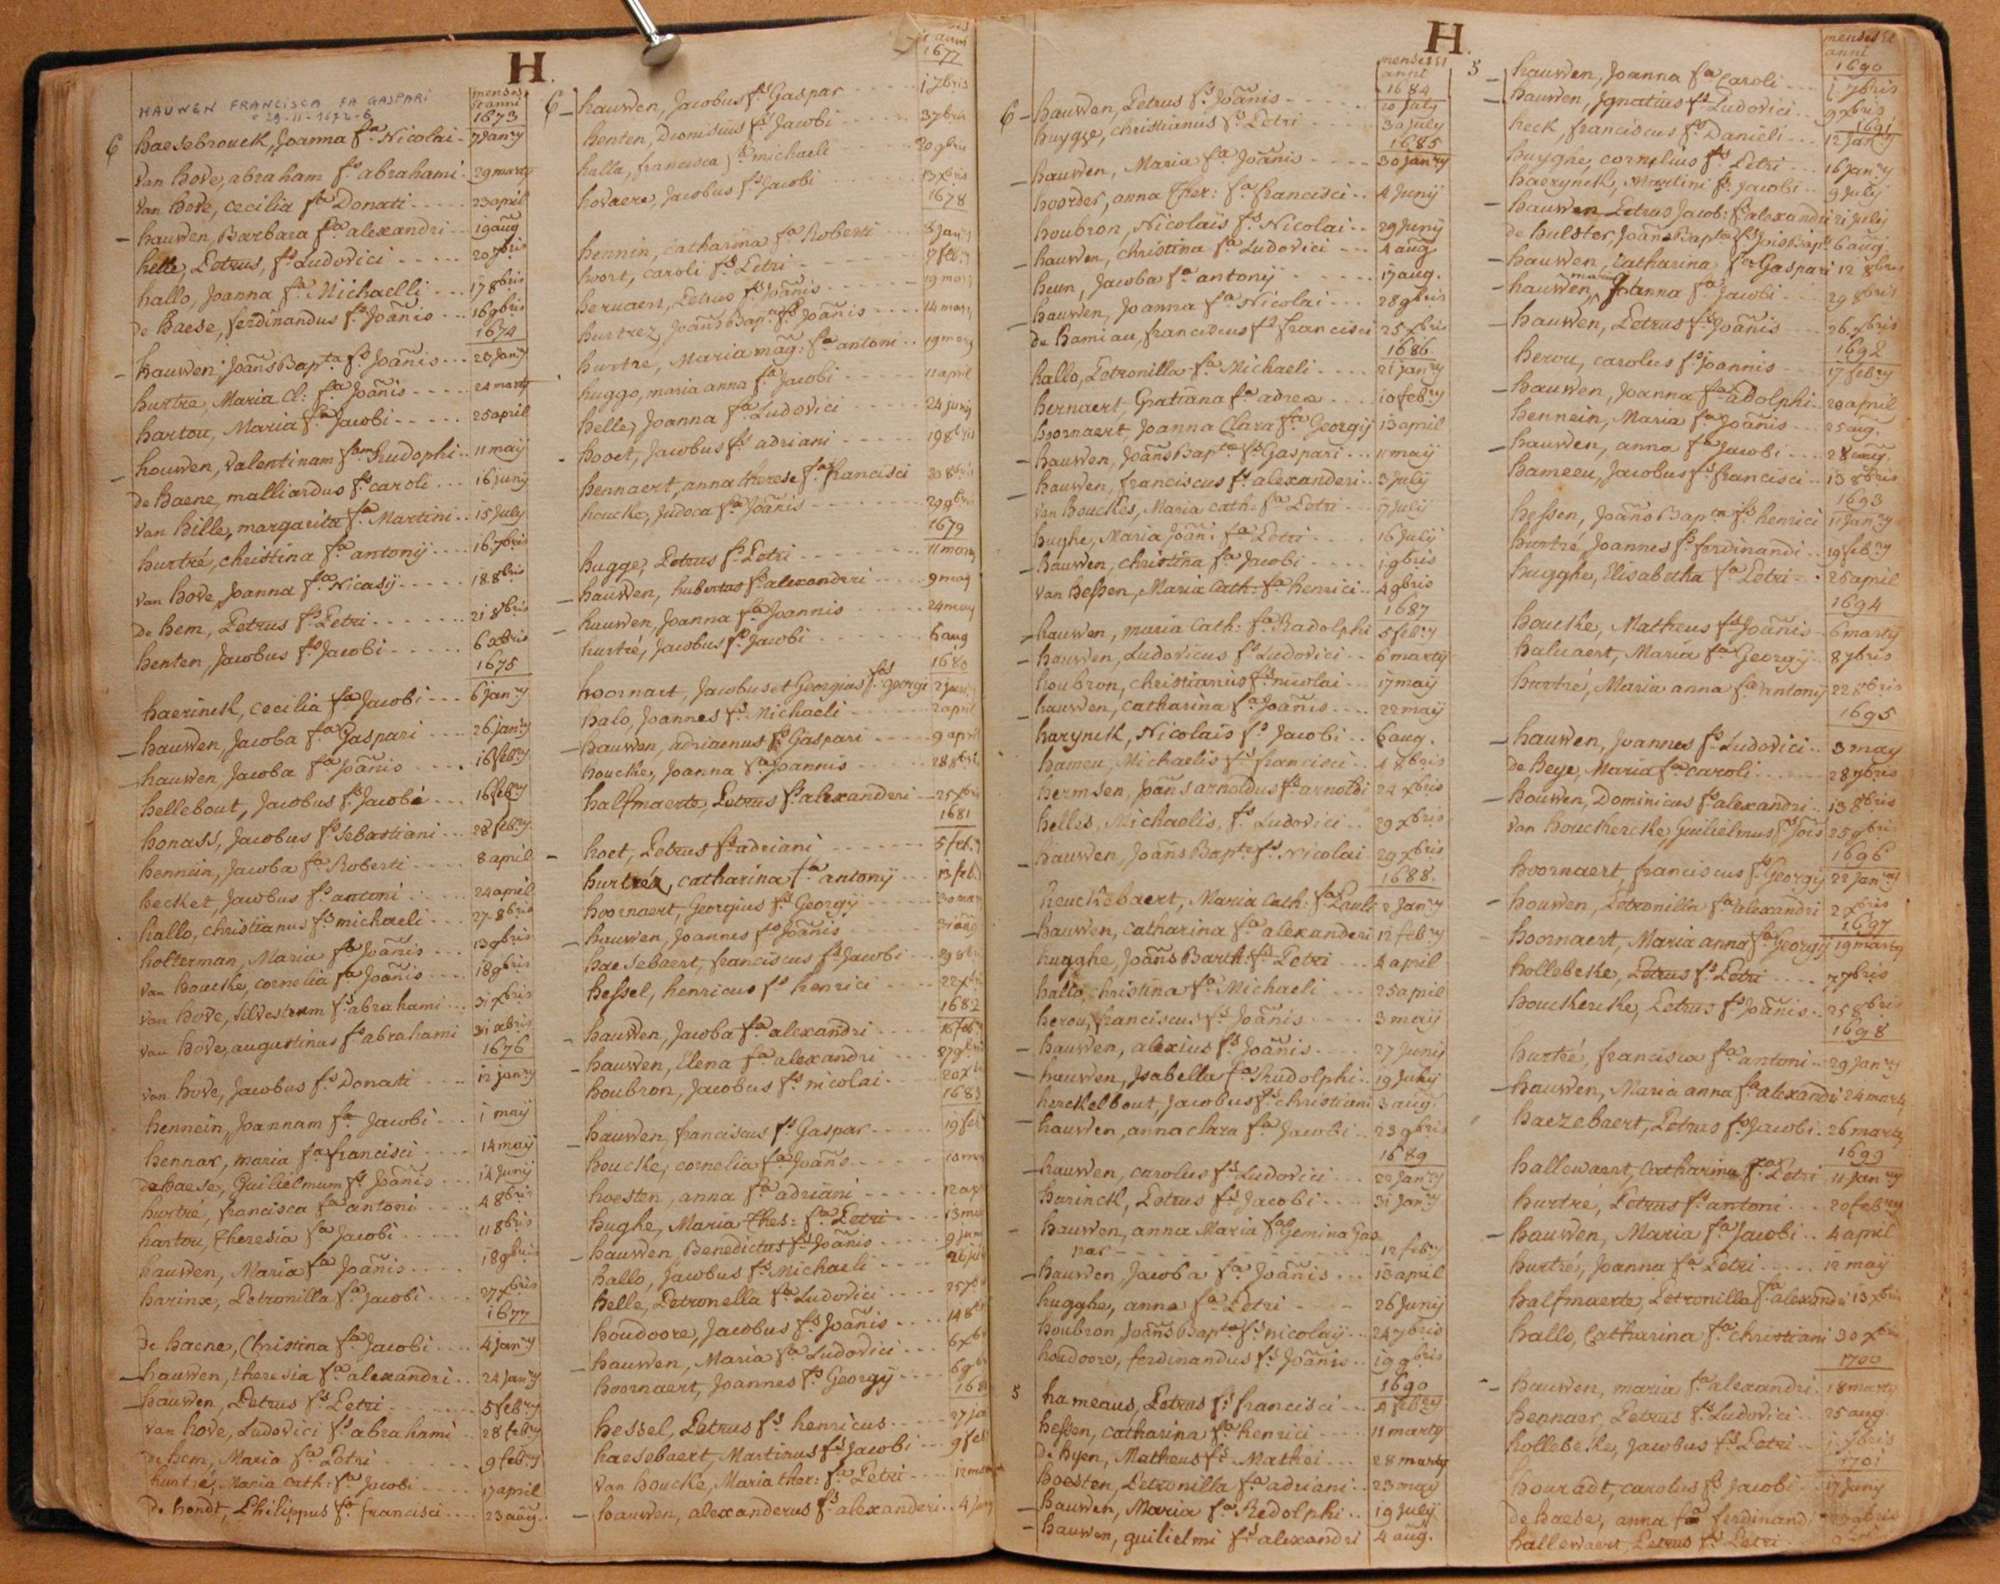 H.
menses et anni
1673
HAUWEN FRANCISCA FA GASPARI
29-11-1672-6
6 haesebrouck, Joanna fa Nicolai - 7 Janry
van hove, abraham fs abrahami - 29 marty
van hove, cecilia fa Donati - - - 23 april
- hauwen, Barbara fa alexandri - - 19 aug
helle, Petrus, fs Ludovici - - - 20 7bris
hallo, Joanna fa Michaelli - - - 17 8bris
de haese, ferdinandus fs Joañis - - - 16 9bris
1674
- hauwen, Joañs Bapta fs Joañis - - - 20 Janry
hurtre, Maria Cl: fa Joañis - - - 24 marty
hartou, Maria fa Jacobi - - - 25 april
- houwen, Valentinam Rudophi - - 11 maij
de haene, malliardus fs caroli - - - 16 junij
van hille, margarita fa Martini - - 15 July
hurtré, christina fa antonij - - - 16 7bris
van hove, Joanna fa Nicasij - - - 18 8bris
de hem, Petrus fs Petri - - - 21 8bris
henten, Jacobus fs Jacobi - - - 6 xbris
1675
haerinck, cecilia fa Jacobi - - - 6 janry
- hauwen, Jacoba fa Gaspari - - - 26 janry
- hauwen, Jacoba fa Joañis - - - 16 febry
hellebout, Jacobus fs Jacobi - - - 16 febry
honass, Jacobus fs Sebastiani - - - 28 febry
hennein, Jacoba fa Roberti - - - 8 april
hecket, Jacobus fs antoni - - - 24 april
hallo, christianus fs michaeli - - - 27 8bris
holterman, Maria fa Joañis - - - 13 9bris
van houcke, cornelia fa Joañis - - - 18 9bris
van hove, silvestrem fs abrahami - - - 31 xbris
van hove, augustinus fs abrahami 31 xbris
1676
van hove, Jacobus fs Donati - - - 12 janry
hennein, Joannam fa Jacobi - - - 1 maij
hennar, maria fa francisci - - - 14 maij
de haese, Guilielmum fs Joañis - - - 14 Junij
hurtré, francisca fa antoni - - - 4 8bris
hartou, Theresia fa Jacobi - - - 11 8bris
hauwen, Maria fa Joañis - - - 18 9bris
harinx, Petronilla fa Jacobi - - - 27 xbris
1677
de haene, Christina fa Jacobi - - - 4 janry
- hauwen, theresia fa alexandri - - 24 Janry
- hauwen, Petrus fs Petri - - - 5 febry
van hove, Ludovici fs abrahami - - 28 febry
de hem, Maria fa Petri - - - 9 febry
hurtré, Maria Cath: fa Jacobi - - - 17 april
de hondt, Philippus fs francisci - - - 23 aug.
anni
1677
6 - hauwen, Jacobus fs Gaspar - - - 1 7bris
henten, Dionisius fs Jacobi - - - 3 7bris
halla, francisca fa michaeli - - - 20 9bris
hovaere, Jacobus fs Jacobi - - - 13 xbris
1678
hennein, catharina fa Roberti - - - Janry
hoort, caroli fs Petri - - - 7 febry
heruaert, Petrus fs Joañis - - - 19 mart
hurtrez, Joañs Bapta fs Joañis - - - 14 mart
hurtre, Maria mag: fa antoni - - 19 mart
huggo, maria anna fa Jacobi - - - 11 april
helle, Joanna fa Ludovici - - - 24 junij
- hooct, Jacobus fs adriani - - - 19 8bris
hennaert, anna therese fa francisci 20 8bris
houcke, Judoca fa Joañis - - - 29 9bris
1679
hugge, Petrus fs Petri - - - 11 mart
- hauwen, hubertus fs alexandri - - - 9 may
- hauwen, Joanna fa Joannis - - - 24 may
hurtré, Jacobus fs Jacobi - - - 6 aug
1680
hoornaert, Jacobus et Georgius fs Georgi 2 Junij
halo, Joannes fs Michaeli - - - 2 april
- hauwen, adriaenus fs Gaspari - - - 9 april
houcke, Joanna fa Joannis - - - 28 8bris
halfmaerte, Petrus fs alexanderi - - 25 xbris
1681
- hoet, Petrus fs adriani - - - 5 febry
hurtréz, catharina fa antonij - - - 13 feb.
hoornaert, Georgius fs Georgij - - - 30 mar
- hauwen, Joannes fs Joañis - - - 31 aug
haesebaert, franciscus fs Jacobi - - - 29 8bris
hessel, henricus fs henrici - - - 22 xbris
1682
- hauwen, Jacoba fa alexandri - - - 16 febry
- hauwen, Elena fa alexandri - - - 27 9bris
houbron, Jacobus fs nicolai - - - 20 xbris
1683
- hauwen, franciscus fs Gaspar - - - 19 feb
houcke, cornelia fa Joañs - - - 10 mar
hoesten, anna fa adriani - - - 12 apr
hughe, Maria Thes: fa Petri - - - 13 mai
- hauwen, Benedictus fs Joañis - - - 9 Jun
hallo, Jacobus fs Michaeli - - - 26 jul
helle, Petronella fa Ludovici - - - 25 7b
houdoore, Jacobus fs Joañis - - - 14 8b
- hauwen, Maria fa Ludovici - - - 6 xb
hoornaert, Joannes fs Georgij - - - 6 9b
168
hessel, Petrus fs henricus - - - 27 ja
haesebaert, Martinus fs Jacobi - - - 9 feb
van houcke, Maria ther: fa Petri - - - 12 mar
- hauwen, alexanderus fs alexanderi - - 4 Jun
H.
menses et anni
1684
6 - hauwen, Petrus fs Joañis - - - 20 July
huyge, christianus fs Petri - - - 30 July
1685
- hauwen, Maria fa Joañis - - - 30 Janry
hoorder, anna Ther: fa francisci - - 4 Junij
houbron, Nicolaijs fs Nicolai - - 29 Junij
- hauwen, christina fa Ludovici - - - 4 aug
heun, Jacoba fa antonij - - - 17 aug.
- hauwen, Joanna fa Nicolai - - - 28 9bris
de hamiau, franciscus fs francisci 25 xbris
1686
hallo, Petronilla fa Michaeli - - - 21 janry
hernaert, Gratiana fa adrea - - - 10 febry
hoornaert, Joanna Clara fa Georgij 13 april
- hauwen, Joañs Bapta fs Gaspari - - - 11 maij
- hauwen, franciscus fs alexanderi - - 3 July
van houckes, Maria Cath: fa Petri - - - 7 july
hughe, Maria Joañi fa Petri - - - 16 julij
- hauwen, christina fa Jacobi - - - 1 9bris
van hessen, Maria Cath: fa henrici - - 4 9bris
1687
- hauwen, maria Cath: fa Radolphi 5 febry
- houwen, Ludovicus fs Ludovici - - 6 marty
houbron, christianus fs nicolai - - 17 maij
- hauwen, catharina fa Joañis - - - 22 maij
harynck, Nicolais fs Jacobi - - 6 aug.
hameu, Michaelis fs francisci - - 4 8bris
hermsen, Joañs arnoldus fs arnoldi 24 xbris
helles, Michaelis, fs Ludovici - - 29 xbris
- hauwen, Joañs Bapta fs Nicolai 29 xbris
1688
heuckebaert, Maria Cath: fa Pauli 2 Janry
- hauwen, catharina fa alexanderi 12 febry
hugghe, Joañs Barth: fs Petri - - - 4 april
hallo, christina fa Michaeli - - - 25 april
herou, franciscus fs Joañis - - - 3 maij
- hauwen, alexius fs Joañis - - - 27 Junij
- hauwen, Isabella fa Rudolphi - - 19 July
herckelbout, Jacobus fs christiani 3 aug.
- hauwen, anna clara fa Jacobi - - 23 9bris
1689
- hauwen, carolus fs Ludovici - - - 22 janry
harinck, Petrus fs Jacobi - - - 31 janry
- hauwen, anna Maria fa Gemina Gas
par - - - 12 febry
- hauwen, Jacoba fa Joañis - - - 13 april
hugghe, anna fa Petri - - - 26 Junij
houbron Joañs Bapta fs nicolaij - - 24 7bris
houdoore, ferdinandus fs Joañis - - 19 9bris
1690
5 hamenus, Petrus fs francisci - - - 4 febry
hessen, catharina fa henrici - - - 11 marty
de hyen, Matheus fs Mathei - - - 28 marty
hoesten, Petronilla fa adriani - - 23 may
- hauwen, Maria fa Redolphi - - 19 july
- hauwen, guilielmi fs alexandri 4 aug.
menses et anni
1690
5 - hauwen, Joanna fa Caroli - - - 1 7bris
- hauwen, Ignatius fs Ludovici - - 9 xbris
1691
heck, franciscus fs Danieli - - - 12 Janry
huyghe, cornelius fs Petri - - - 16 janry
haerynck, Martini fs Jacobi - - 9 July
- hauwen Petrus Jacob: fs alexandri 21 july
de hulster Joañs Bapta fs Jois Bapt 6 aug.
- hauwen, Catharina fa Gaspari 12 8bris
- hauwen, maria Joanna fa Jacobi - - 29 8bris
- hauwen, Petrus fs Joañis - - - 26 xbris
1692
herou, carolus fs Joannis - - - 17 febry
- hauwen, Joanna fa adolphi - - 20 april
hennein, Maria fa Joañis - - - 25 aug.
- hauwen, anna fa Jacobi - - - 28 aug.
hameeu, Jacobus fs francisci - - 13 8bris
1693
hessen, Joañs Bapta fs henrici 11 Janry
hurtré Joannes fs ferdinandi - - 19 febry
hugghe, Elisabetha fa Petri - - 25 april
1694
houcke, Matheus fs Joañis - - 6 marty
haluaert, Maria fa Georgij - - 8 7bris
hurtré, Maria anna fa antonij 22 xbris
1695
- hauwen, Joannes fs Ludovici - - 3 may
de heye, Maria fa caroli - - - 28 7bris
- houwen, Dominicus fs alexandri - - 13 8bris
van houckercke, Guilielmus fs Jois 25 9bris
1696
hoornaert franciscus fs Georgij 22 Janry
- houwen, Petronilla fa alexandri 2 xbris
1697
hoornaert, Maria anna fa Georgij 19 marty
hollebeke, Petrus fs Petri - - - 7 7bris
houckercke, Petrus fs Joañis - - 25 8bris
1698
hurtré, francisca fa antoni - - 29 Janry
- hauwen, Maria anna fa alexandri 24 marty
haezebaert, Petrus fs Jacobi - - 26 marty
1699
hallewaert, Catharina fa Petri 11 Janry
hurtré, Petrus fs antoni - - - 20 febry
- hauwen, Maria fa Jacobi - - 4 april
hurtré, Joanna fa Petri - - - 12 maij
halfmaerte, Petronilla fa alexandri 13 xbris
hallo, Catharina fa christiani 30 xbris
1700
- hauwen, maria fa alexandri - 18 marty
hennaer, Petrus fs Ludovici - - 25 aug
hollebeke, Jacobus fs Petri - - 7bris
1701
houradt, carolus fs Jacobi - - 17 Juny
de haese, anna fa ferdinandi 9bris
hallewaert, Petrus fs Petri